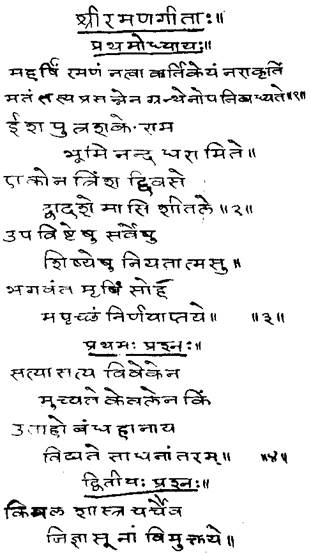 श्रीरमणगीताः॥
प्रथमोध्यायः॥
महर्षि रमणं नत्वा कार्तिकेयं नराकृतिं
मतं तस्य प्रसन्नेन ग्रन्थेनोपनिबध्यते॥१॥
ईशपुत्रशके राम
भूमिनन्द धरामिते॥
एकोनत्रिंश द्दिवसे
द्वादशे मासि शीतले॥२॥
उपविष्टेषु सर्वेषु
शिष्येषु नियतात्मसु॥
भगवंत मृषिं सोहं
मपृच्छं निर्णयाप्तये॥ ॥३॥
प्रथमः प्रश्नः॥
सत्यासत्य विवेकेन
मुच्यते केवलेन किं
उताहो बंधहानाय
विद्यते साधनांतरम्॥ ॥४॥
द्वितीयः प्रश्नः॥
किमलं शास्त्र चर्चैव
जिज्ञासूनां विमुक्तये॥